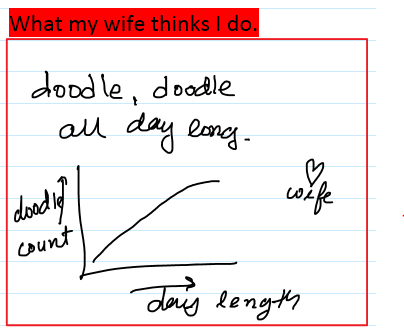 What my wife thinks I do.
doodle, doodle
all day long.
doodle
count
wife
day length